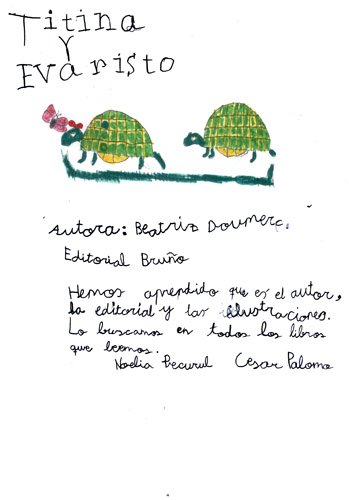 Titina
y
Evaristo
Autora: Beatriz Doumerc.
Editorial Bruño
Hemos aprendido que es el autor,
la editorial y las ilustraciones.
Lo buscamos en todos los libros
que leemos.
Noelia Cesar Palomo